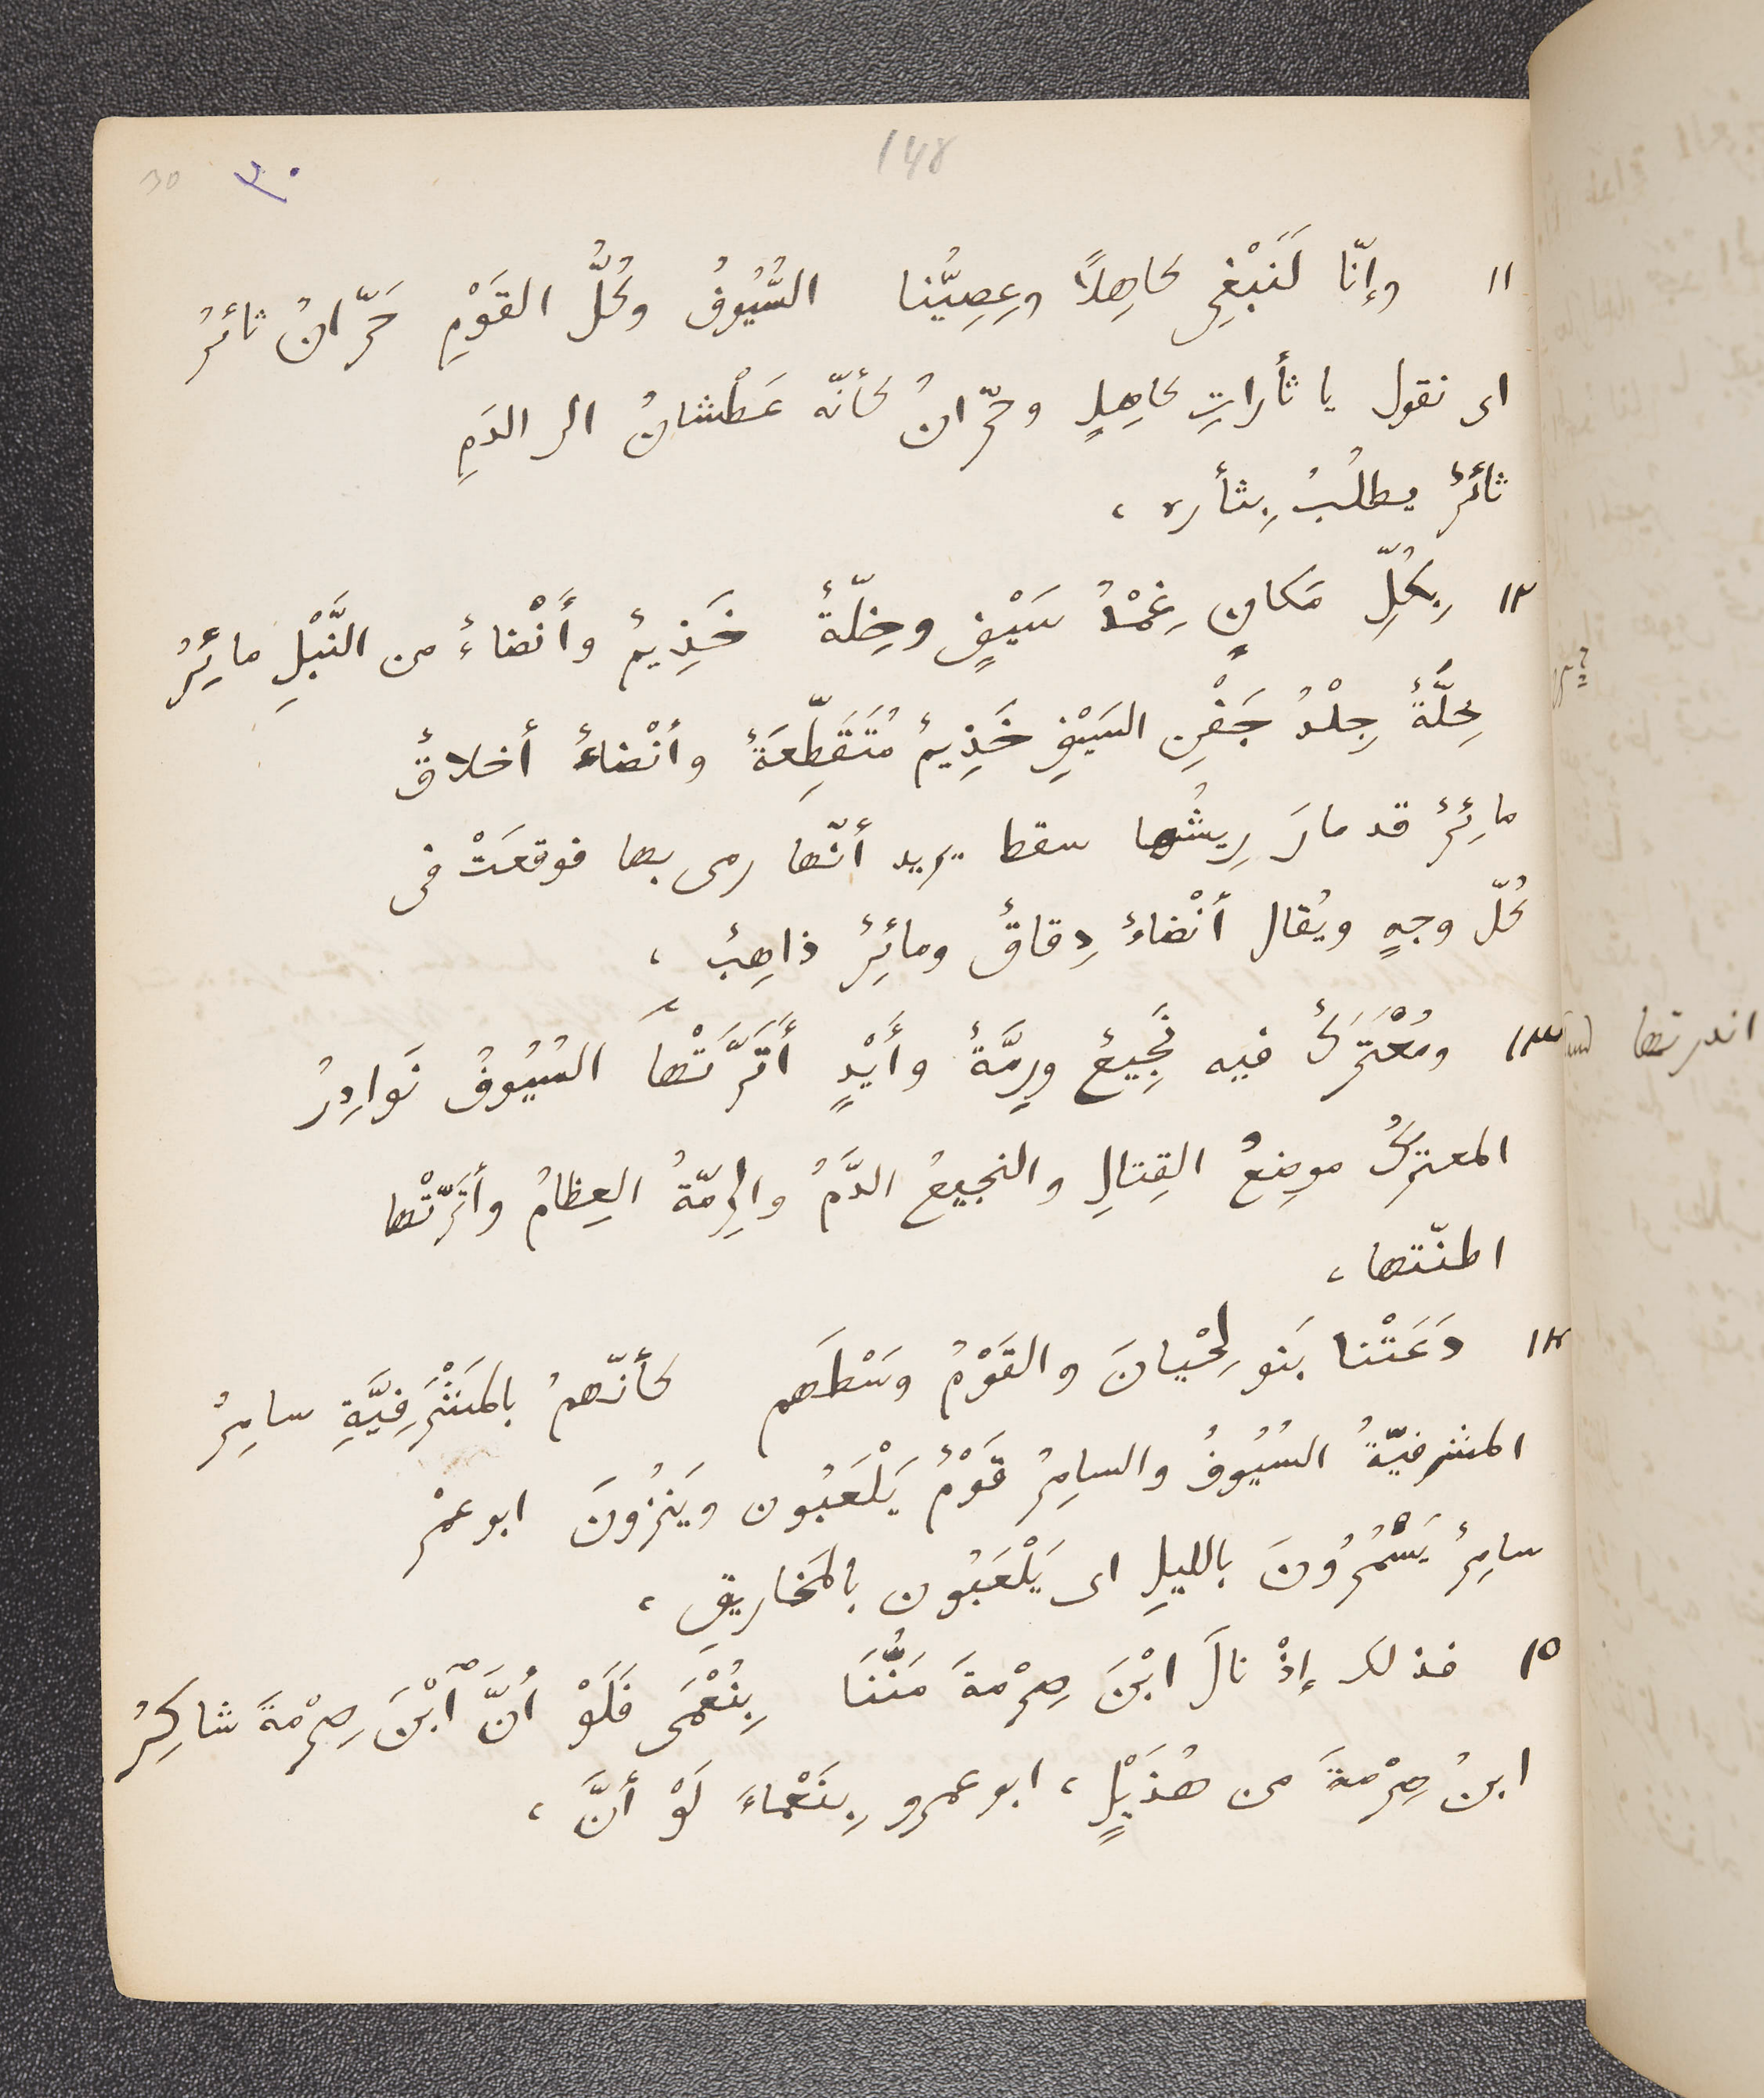 148
٣٠
30
١١ وإنّا لَنَبْغِى كاهِلاً وعِصِيُّنا السُّيُوفُ وكُلُّ القَوْمِ حَرّانُ ثائرُ
اى نقول يا ثأراتِ كاهِلٍ وحرّانُ كأنّه عَطْشانُ الى الدَمِ
ثائرٌ يطلُبُ بِثأره ،
١٢ بِكُلِّ مَكانٍ غِمْدُ سَيْفٍ وخِلّةٌ خَذِيمٌ وأَنْضاءٌ من النَّبْلِ مائِرُ
خِلَّةٌ جِلْدُ جَفْنِ السَيْفِ خَذِيمٌ مُتَقَطِّعَةٌ وأنْضاءٌ أخلاقٌ
مائِرٌ قد مارَ رِيشُها سقط يريد أنّها رمى بها فوقعَتْ فى
كُلّ وجهٍ ويُقال أنْضاءٌ دِقاقٌ ومائِرٌ ذاهِبٌ ،
١٣ ومُعْتَرَكٌ فيه نَجِيعٌ ورِمَّةٌ وأَيْدٍ أَتَرَّتْها السُيُوفُ نَوادِرُ
اندرتها
المعترَكُ موضِعُ القِتالِ والنجيعُ الدَّمُ والرِمّةُ العِظامُ وأتَرّتْها
اطنّتها ،
١٤ دَعَتْنا بَنو لِحْيانَ والقَوْمُ وسْطَهم كأنّهمُ بالمَشْرَفِيَّةِ سامِرُ
المشرفيّةُ السُيُوفُ والسامِرُ قَوْمٌ يَلْعَبُون ويَنزُونَ ابو عمْر
سامِرٌ يَسْمُرُونَ بالليلِ اى يَلْعَبُون بالمَخاريقِ ،
١٥ فذلك إذْ نالَ ابْنَ صِرْمةَ مَنُّنَا بِنُعْمَى فَلَوْ أنَّ ٱبْنَ صِرْمةَ شاكِرُ
ابنُ صِرْمةَ من هُذَيْلٍ ، ابو عمرو بِنَعْماءَ لَوْ أنَّ ،